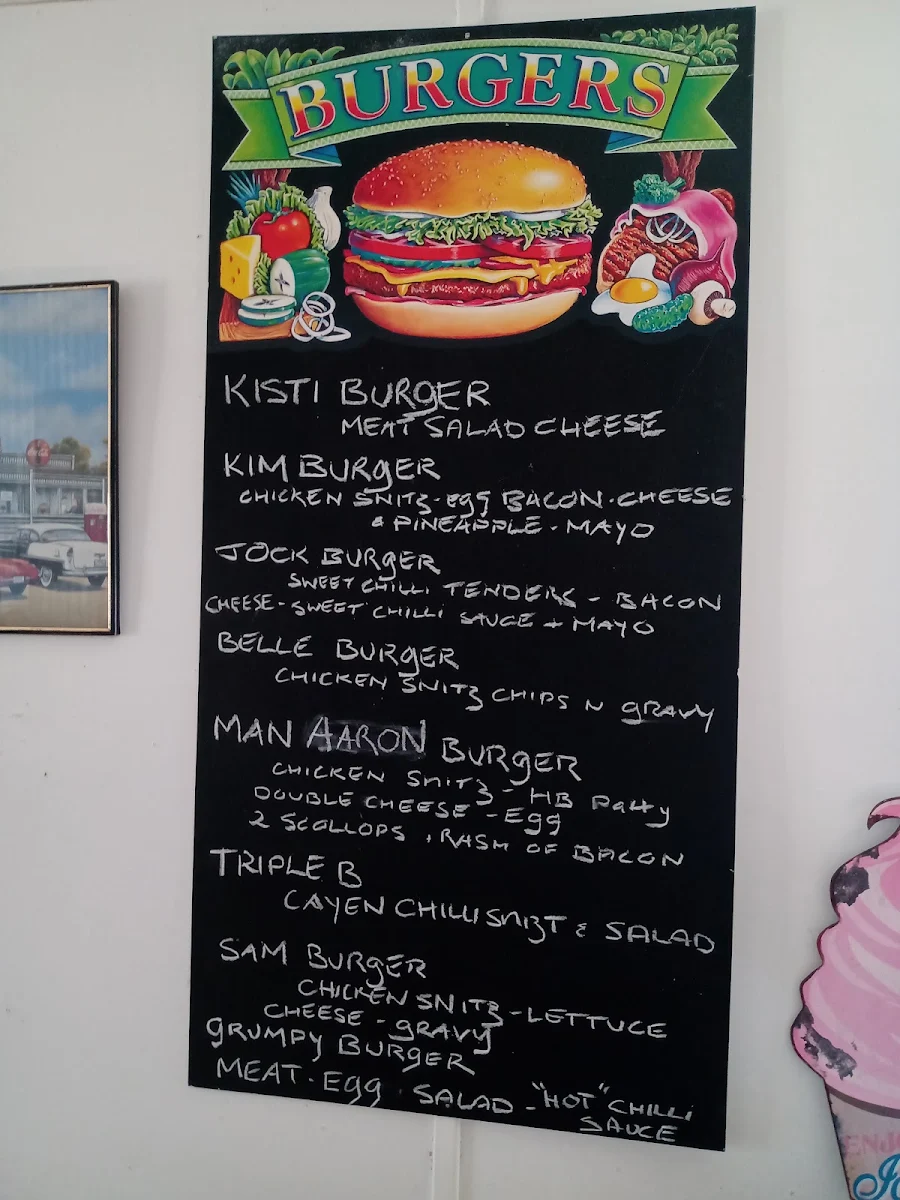 BURGERS
KISTI BURGER
MEAT SALAD CHEESE
KIM BURGER
CHICKEN SNITZ-Egg BACON-CHEESE
& PINEAPPLE-MAYO
JOCK BURGER
SWEET CHILLI TENDERS - BACON
CHEESE-SWEET CHILLI SAUCE + MAYO
BELLE BURGER
CHICKEN SNITZ CHIPS N GRAVY
MAN AARON BURGER
CHICKEN SNITZ - HB Patty
DOUBLE CHEESE - Egg
2 SCOLLOPS . RASH OF BACON
TRIPLE B
CAYEN CHILLI SNIZT & SALAD
SAM BURGER
CHICKEN SNITZ-LETTUCE
CHEESE-GRAVY
GRUMPY BURGER
MEAT-Egg-SALAD-"HOT" CHILLI
SAUCE